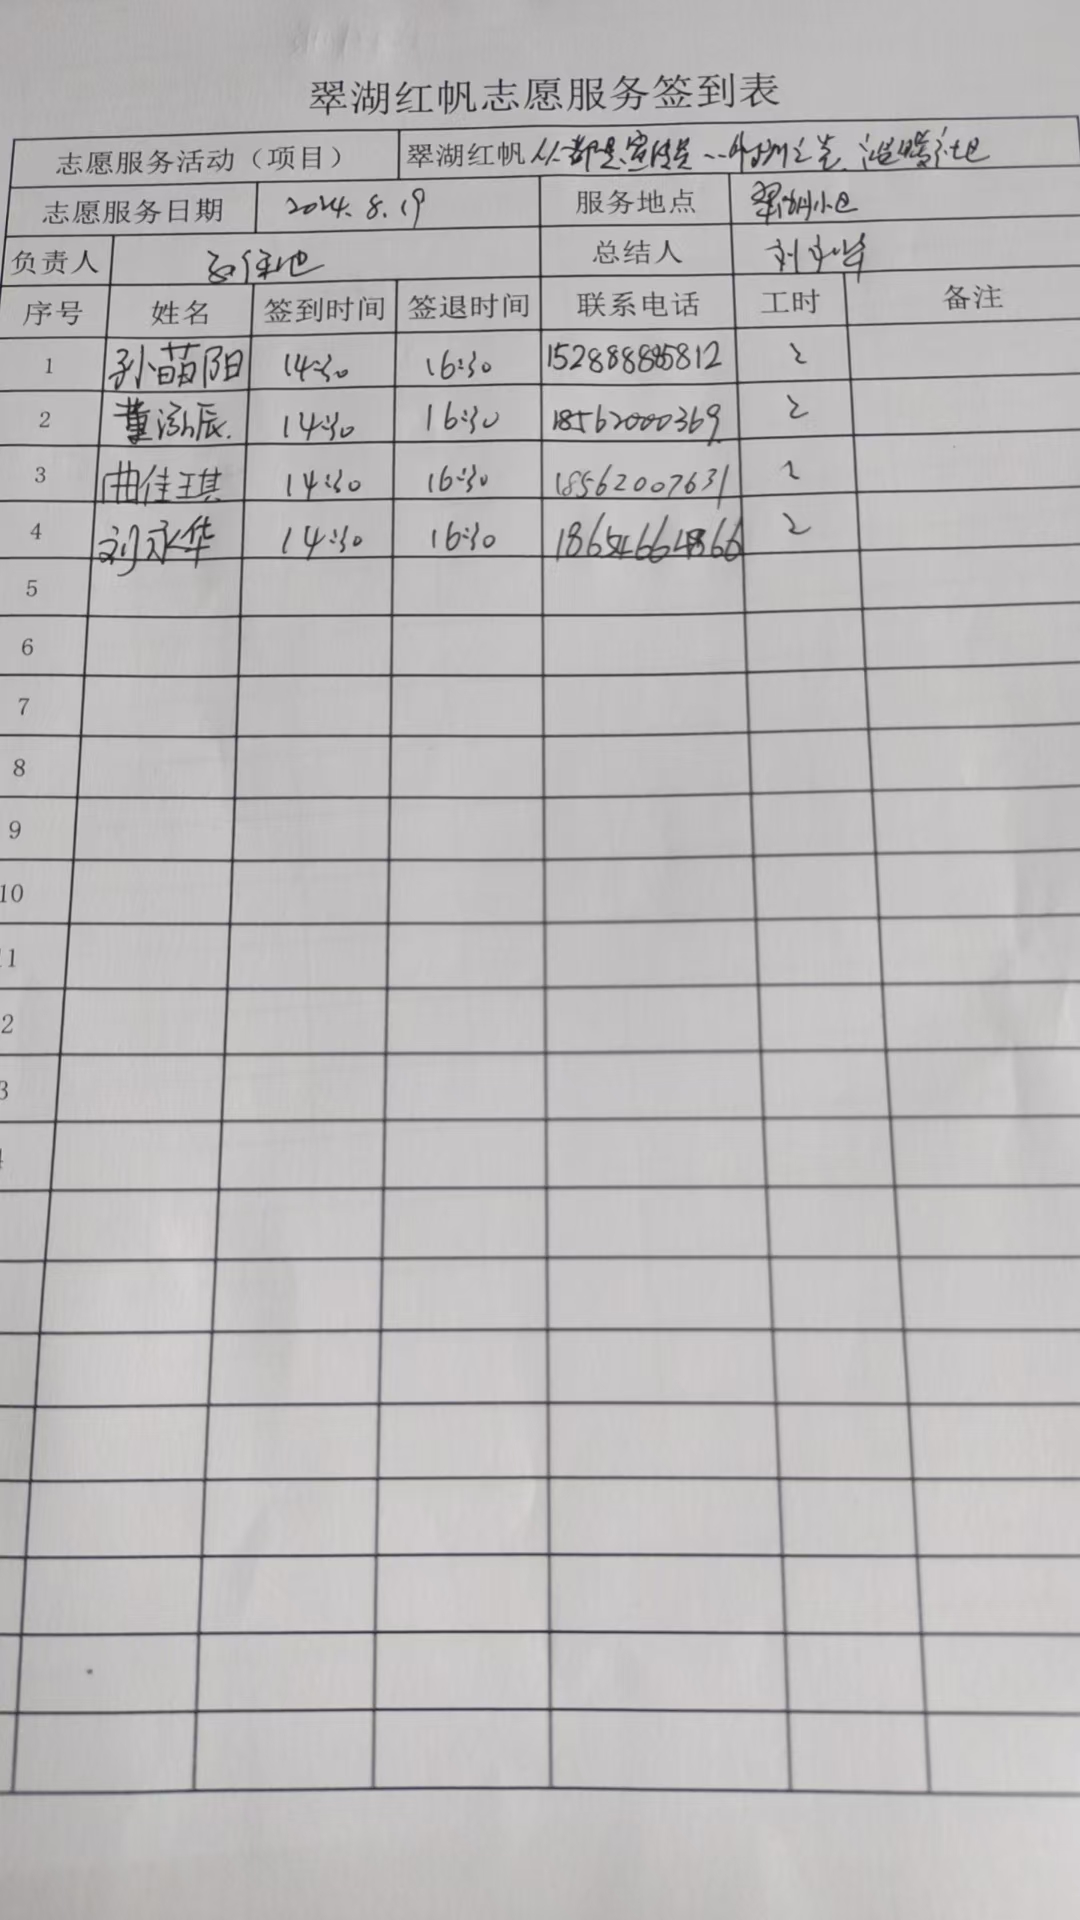 翠湖红帆志愿服务签到表
志愿服务活动（项目） 翠湖红帆人人都是宣传员
志愿服务日期 2024.8.19 服务地点 翠湖小区
负责人 总结人 刘永华
序号 姓名 签到时间 签退时间 联系电话 工时 备注
1 孙苗阳 14:30 16:30 2
2 董泓辰 14:30 16:30 18562000369 2
3 曲佳琪 14:30 16:30 18562007631 2
4 刘永华 14:30 16:30 2
5
6
7
8
9
10
11
2
3
4